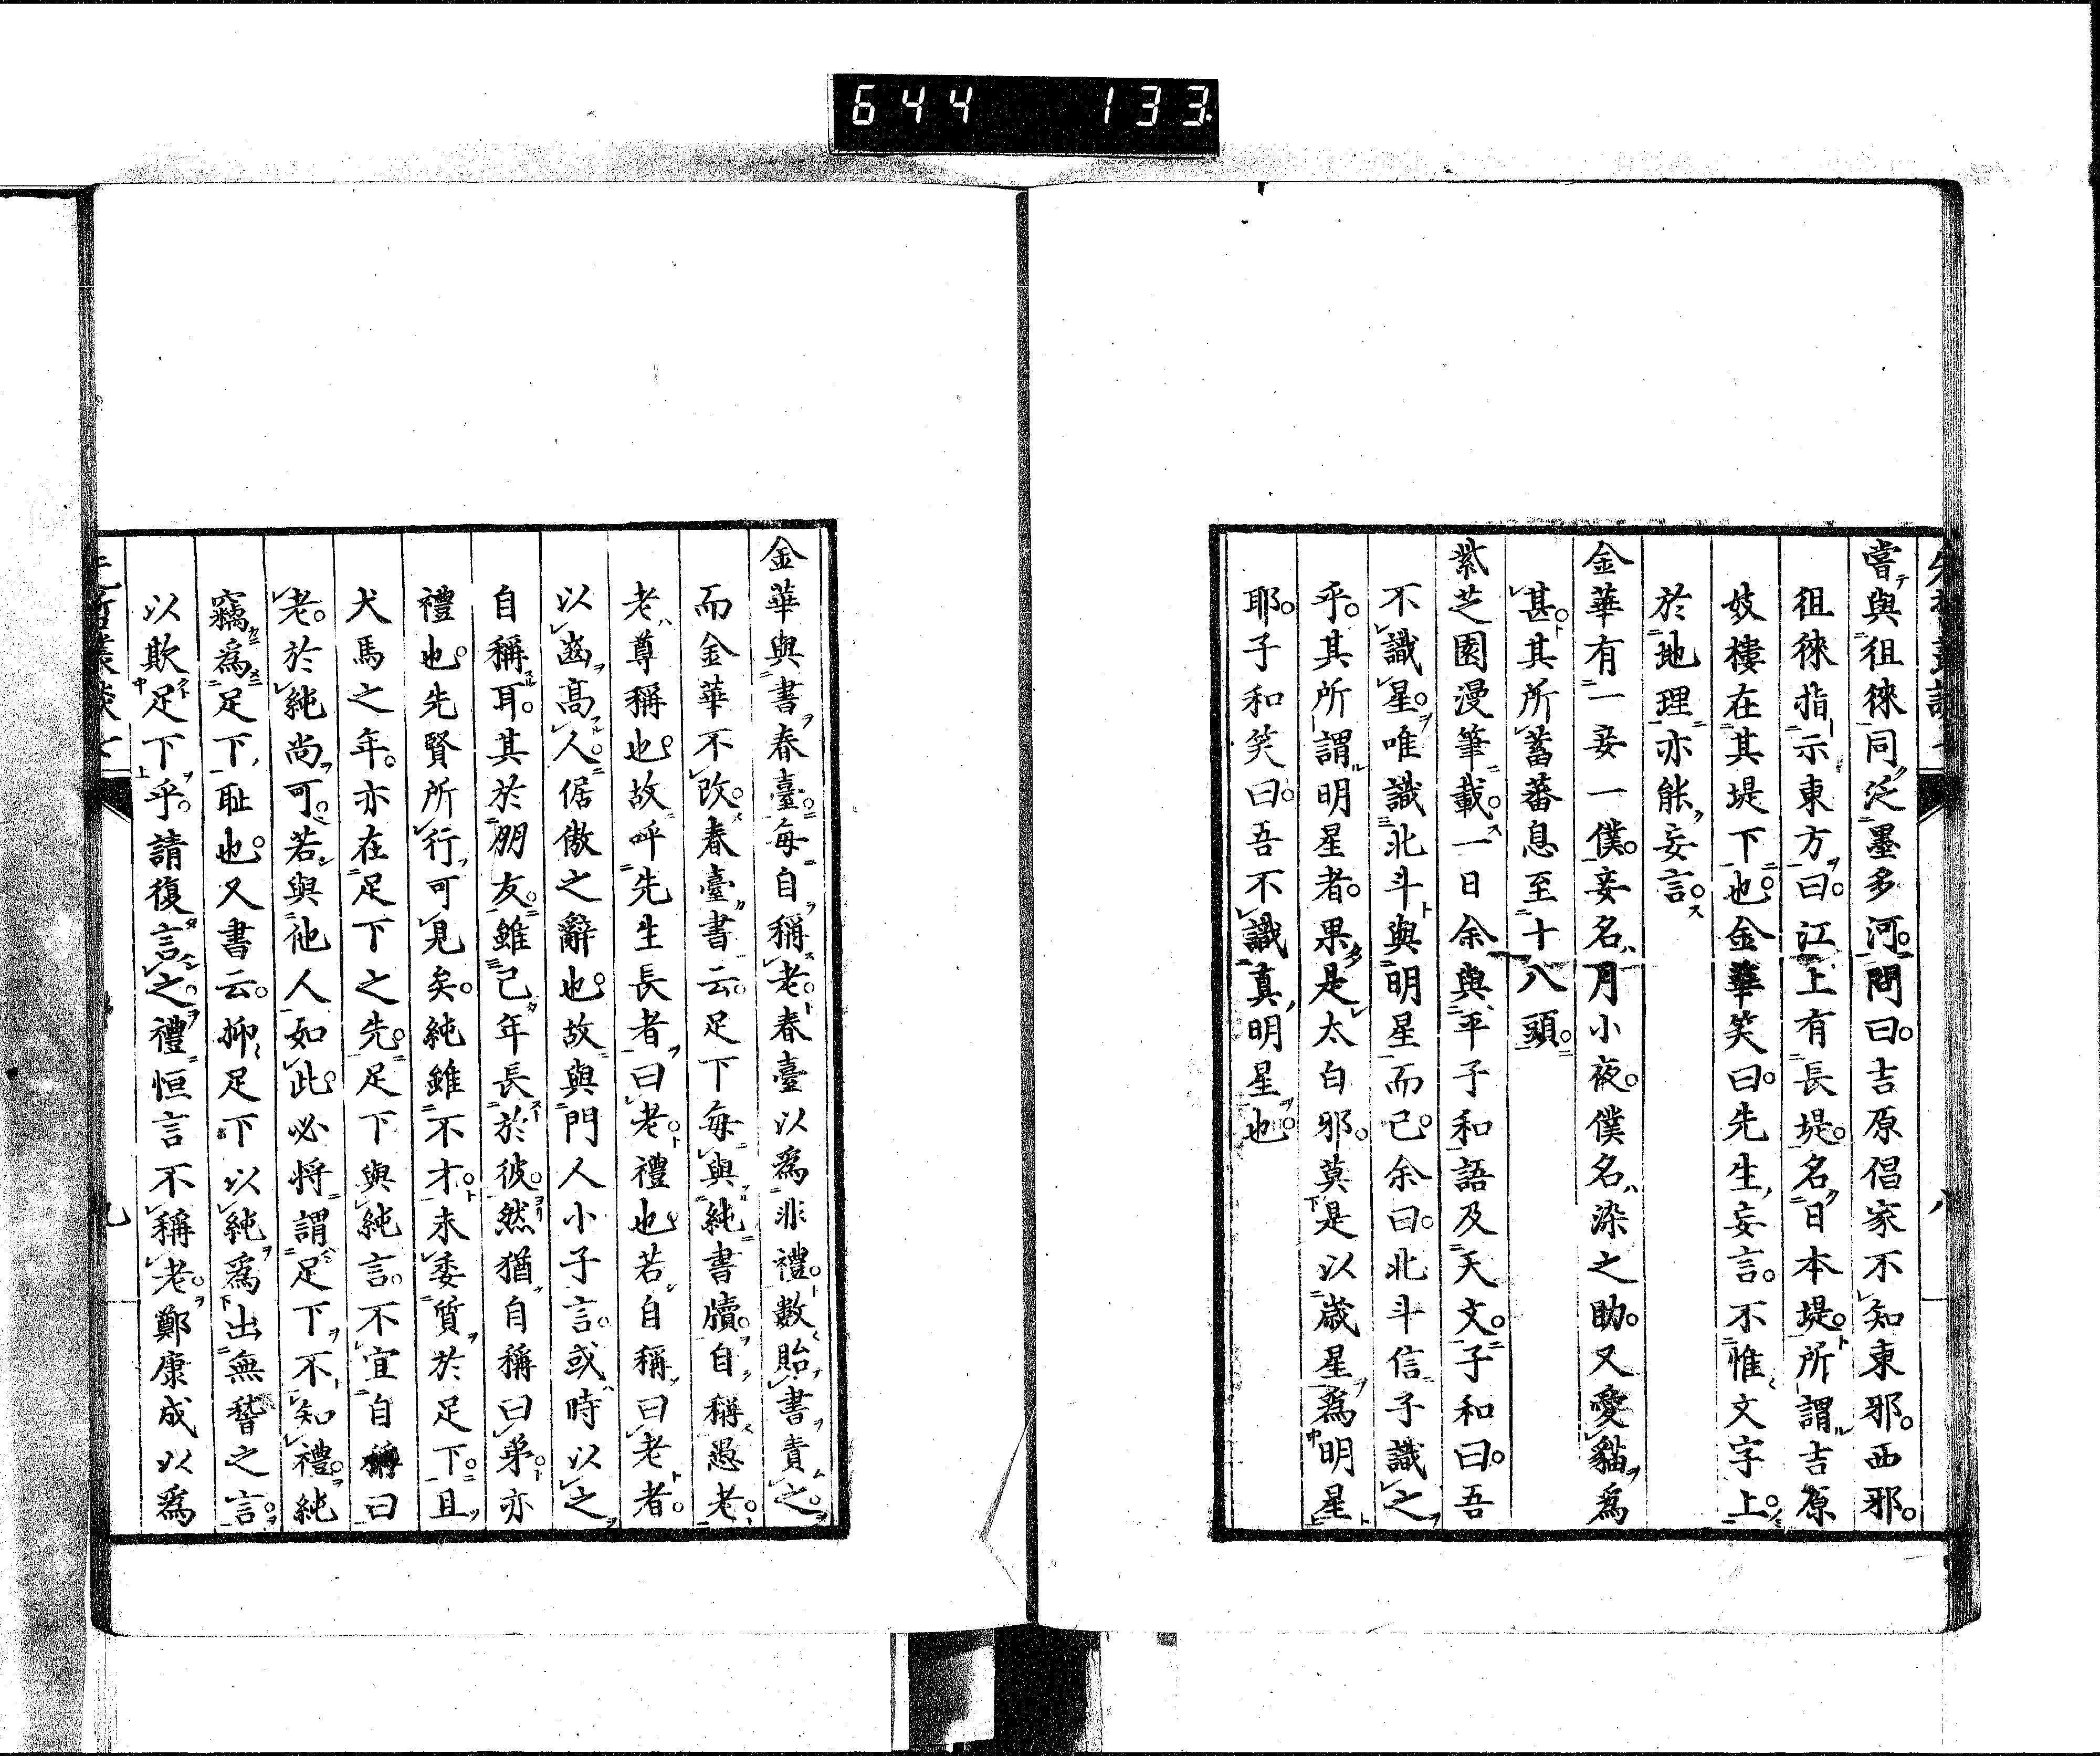 644 133
嘗與徂徠同泛墨多河。問曰。吉原倡家不知東邪。西邪。
徂徠指示東方曰。江上有長堤。名日本堤。所謂吉原
妓樓在其堤下也。金華笑曰。先生妄言。不惟文字上。
於地理亦能妄言。
金華有一妾一僕。妾名月小夜。僕名染之助。又愛貓爲
甚。其所蓄蕃息至十八頭。
紫芝園漫筆載。一日余與平子和語及天文。子和曰。吾
不識星。唯識北斗與明星而已。余曰。北斗信子識之
乎。其所謂明星者。果是太白邪。莫是以歲星爲明星
耶。子和笑曰。吾不識真明星也。
八
金華與書春臺。每自稱老。春臺以爲非禮。數貽書責之。
而金華不改。春臺書云。足下每與純書牘。自稱愚老。
老尊稱也。故呼先生長者曰老。禮也。若自稱曰老者。
以齒高人。倨傲之辭也。故與門人小子言。或時以之
自稱耳。其於朋友。雖己年長於彼。然猶自稱曰弟。亦
禮也。先賢所行可見矣。純雖不才。未委質於足下。且
犬馬之年。亦在足下之先。足下與純言。不宜自稱曰
老。於純尚可。若與他人如此。必將謂足下不知禮。純
竊爲足下耻也。又書云。抑足下以純爲出無稽之言。
以欺足下乎。請復言之。禮恒言不稱老。鄭康成以爲
先哲叢談七
九